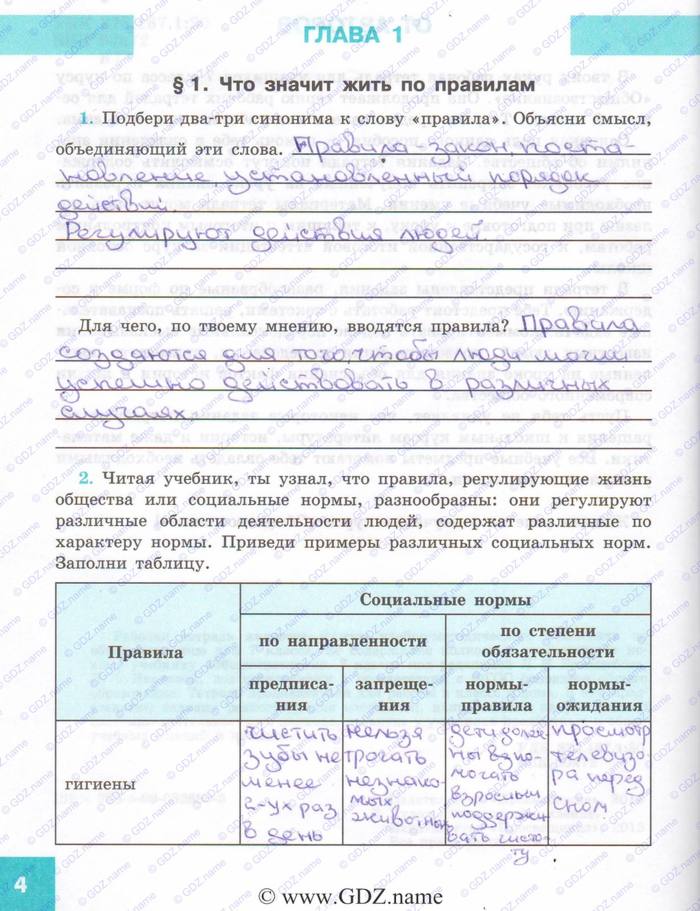 ГЛАВА 1
§ 1. Что значит жить по правилам
1. Подбери два-три синонима к слову «правила». Объясни смысл,
объединяющий эти слова. Правила-закон, поста-
новление, установленный порядок
действий.
Регулируют действия людей.
Для чего, по твоему мнению, вводятся правила? Правила
создаются для того, чтобы люди могли
успешно действовать в различных
случаях
2. Читая учебник, ты узнал, что правила, регулирующие жизнь
общества или социальные нормы, разнообразны: они регулируют
различные области деятельности людей, содержат различные по
характеру нормы. Приведи примеры различных социальных норм.
Заполни таблицу.
Правила
Социальные нормы
по направленности
по степени
обязательности
предписа-
ния
запреще-
ния
нормы-
правила
нормы-
ожидания
гигиены
чистить
зубы не
менее
2-ух раз
в день
нельзя
трогать
незнако-
мых
животных
дети долж
ны взпо-
могать
взрослым
поддержи
вать чисто
ту
просмотр
телевизо
ра перед
сном
4
© www.GDZ.name